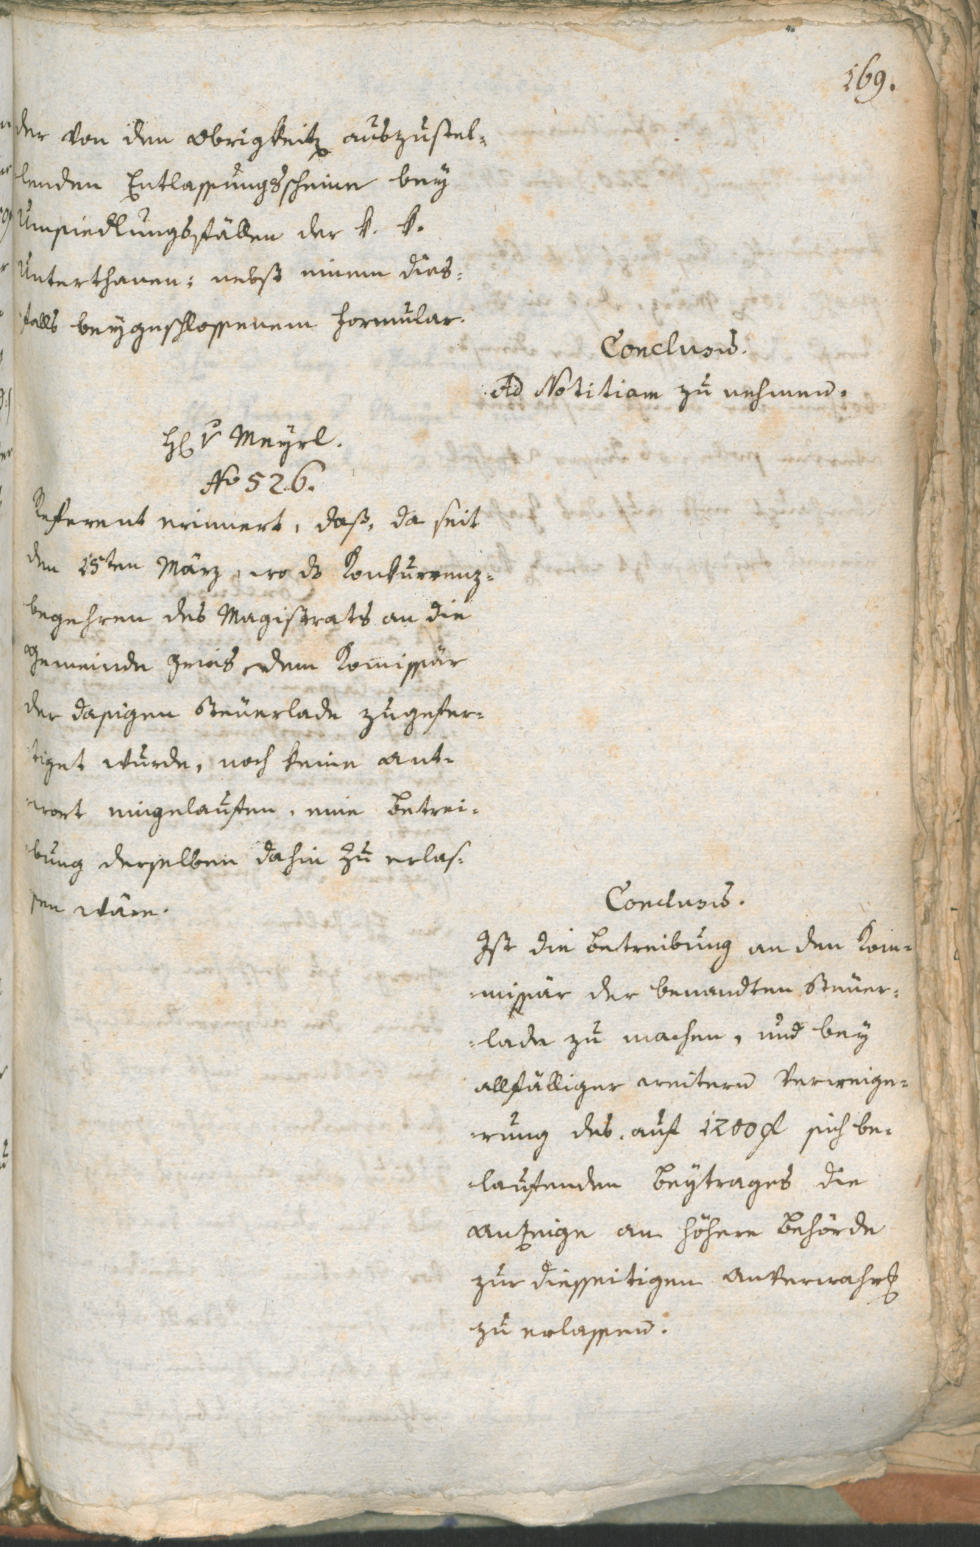 169.
der von den Obrigkeit auszustel-
lenden Entlassungsscheine bey
Umsiedlungsfällen der k. k.
Unterthanen: nebst einem dies-
falls beygeschlossenem Formular.
Conclusis.
Ad Notitiam zu nehmen.
H v Meyrl.
No 526.
Referent erinnert, daß, da seit
den 15ten März, wo ds Konkurrenz-
begehren des Magistrats an die
Gemeinde dem Komissär
der dasigen Steuerlade zugefer-
tiget wurde, noch keine Ant-
wort eingelaufen, eine Betrei-
bung derselben dahin zu erlas-
sen wäre.
Conclusis.
Ist die Betreibung an den Kom-
missär der benandten Steuer-
lade zu machen, und bey
allfälliger weitern Verweige-
rung des auf 1200 f sich be-
laufenden Beytrages die
Anzeige an höhere Behörde
zur diesseitigen Anverwahr
zu erlassen.